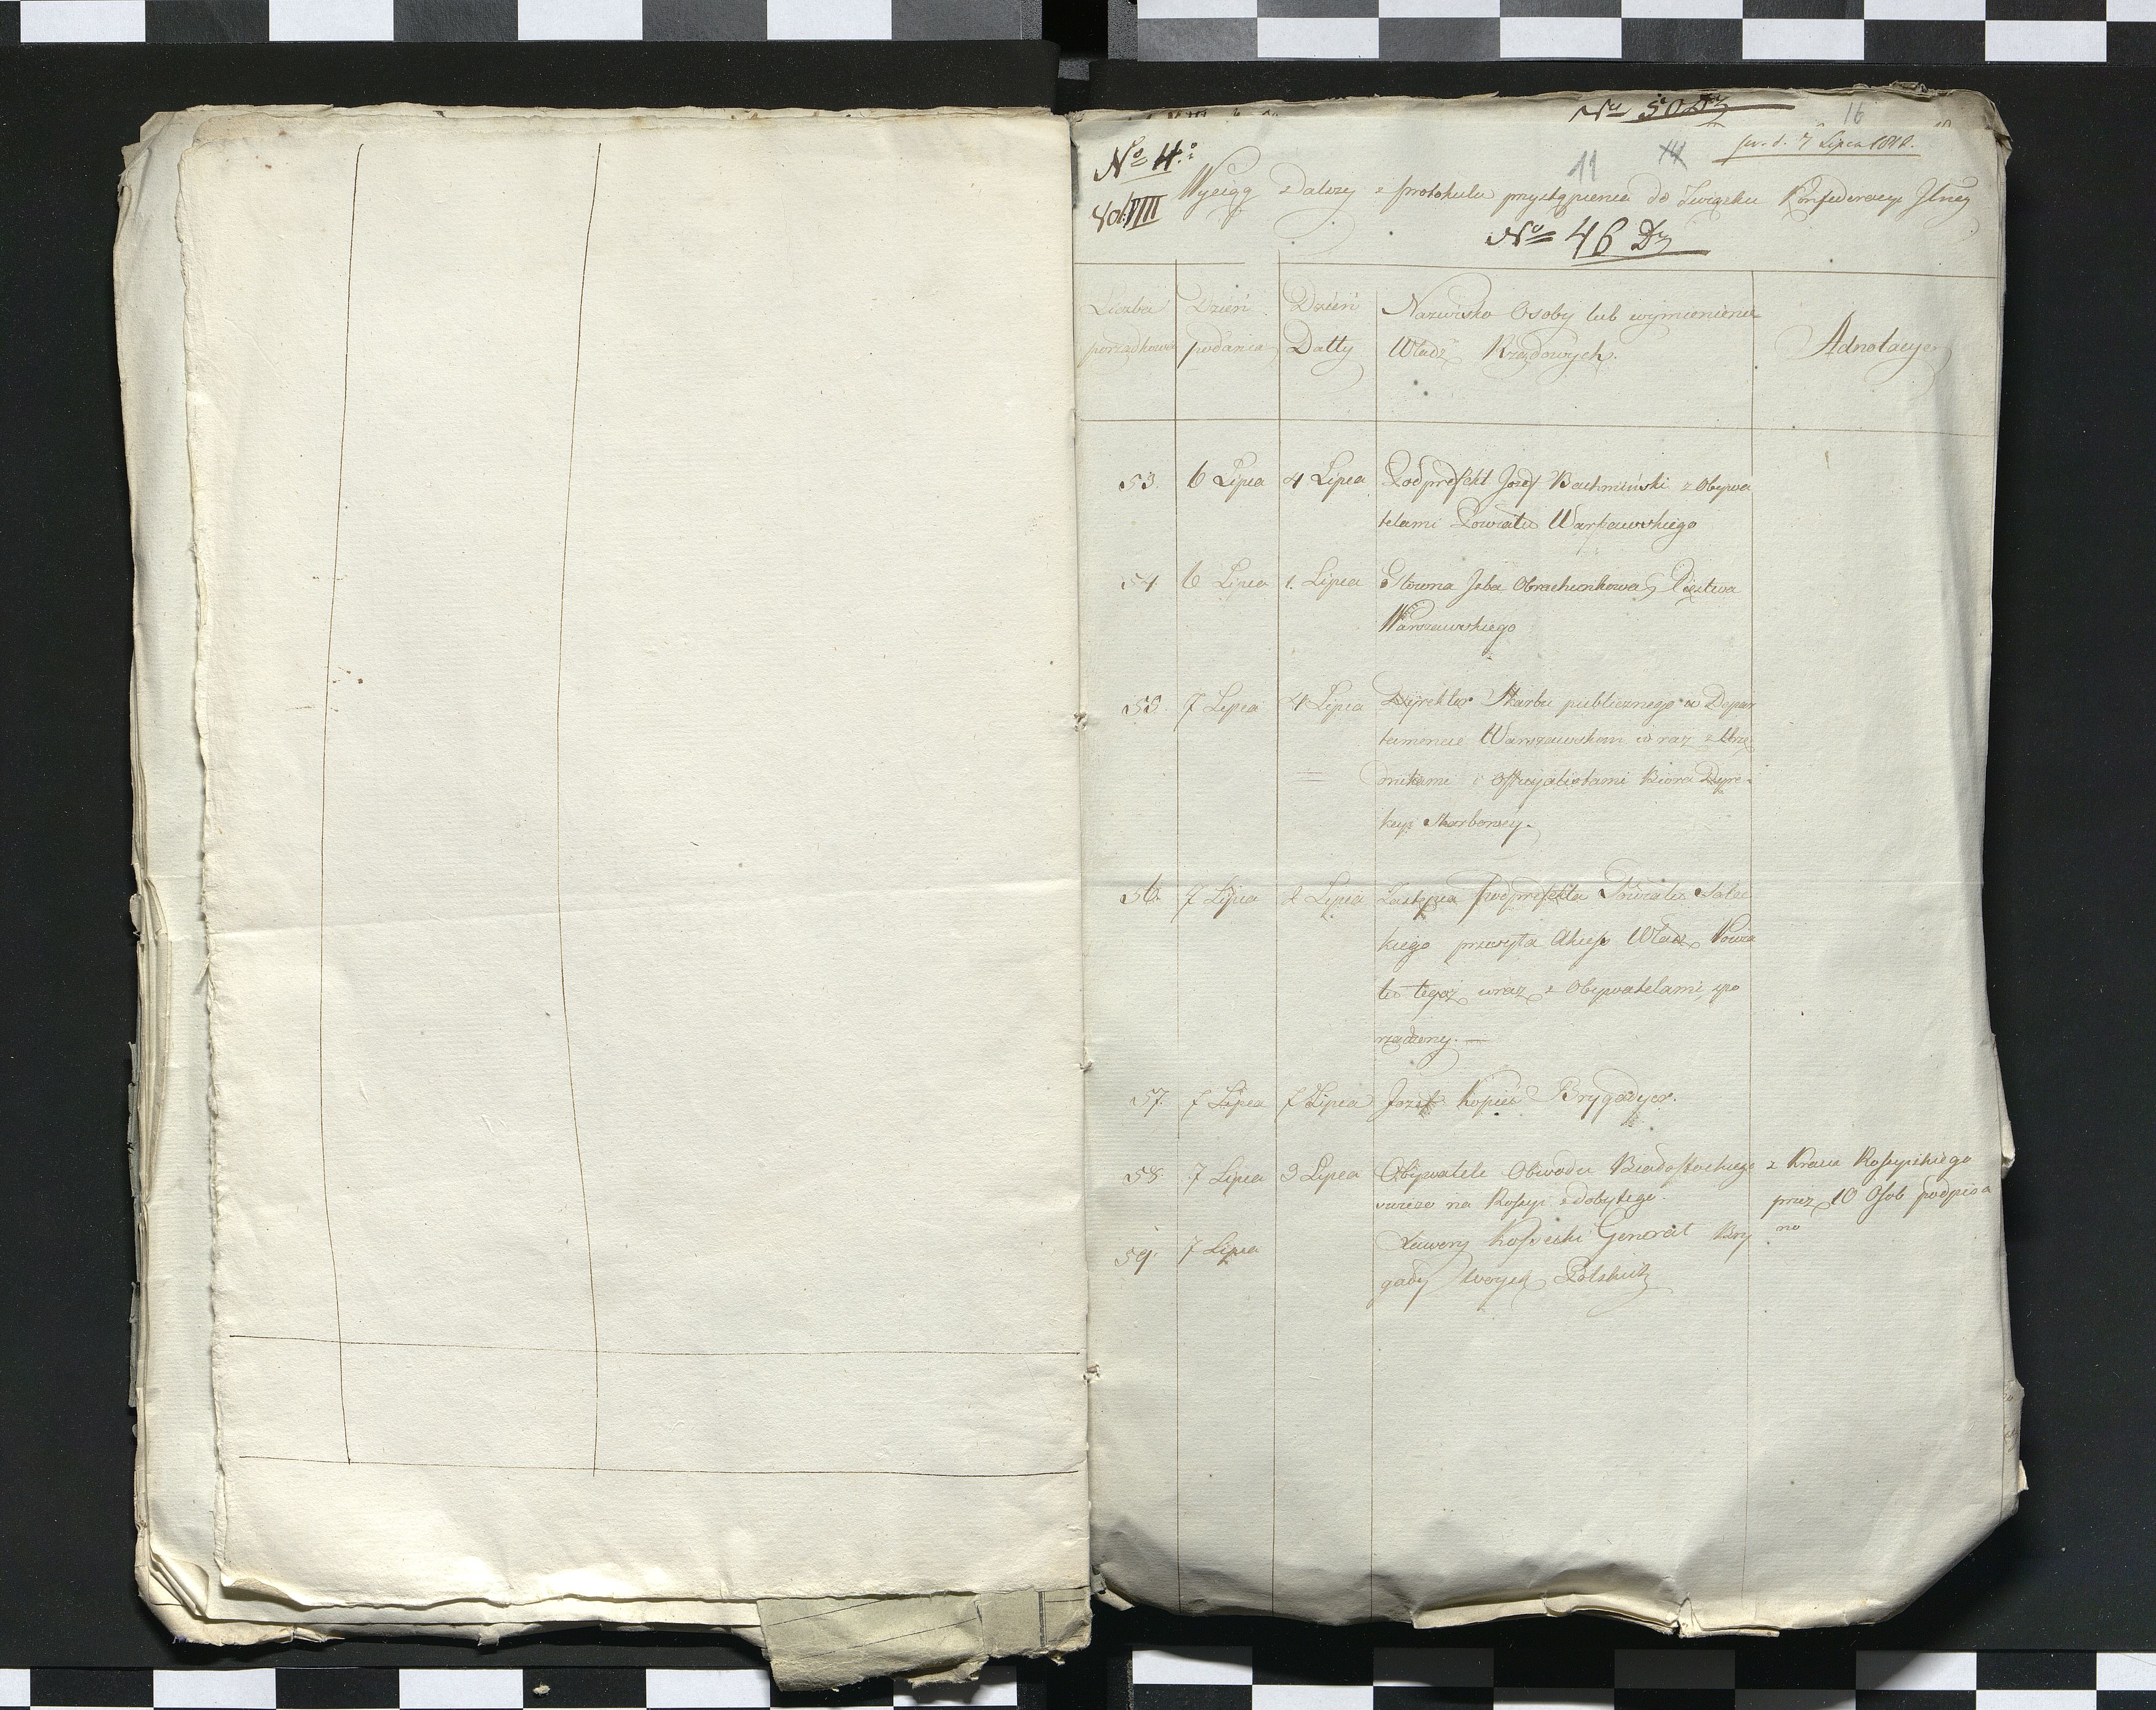 Nu 50 Dz
16
pr. d. 7 Lipca 1812.
No 4o
11 14
Wyciąg dalszy z protokulu przystąpienia do Związku Konfederacyi Jlney
Vol. VIII
No 46 Dz
Liczba porządkowa
Dzień podania
Dzień Datty
Nazwisko Osoby lub wymienienie
Władz Rządowych.
Adnotacye
53. 6 Lipca 4 Lipca Podprefekt Jozef Bachmiński z Obywa
telami Powiatu Warszawskiego
54 6 Lipca 1. Lipca Głowna Jzba Obrachunkowa Xięstwa
Warszawskiego
55. 7 Lipca 4 Lipca Dyrektor Skarbu publicznego w Depar
tamencie Warszawskim wraz z Urzę
dnikami i Officyalistami Biora Dyre-
kcyi Skarbowey.
56. 7 Lipca 2 Lipca Zastępca Podprefekta Powiatu
kiego przesyła Akces Władz Powia
tu tegoż wraz z Obywatelami, spo
rządzony. —
57. 7 Lipca 7 Lipca Jozef Kopeć Brygadyer.
58. 7 Lipca 3 Lipca Obywatele Obwodu Białostockiego z Kraiu Rossyiskiego
swieżo na Rossyi zdobytego. przez 10 Osob podpisa
no
59. 7 Lipca Xawery Kossecki Generał Bry
gady Woysk Polskich